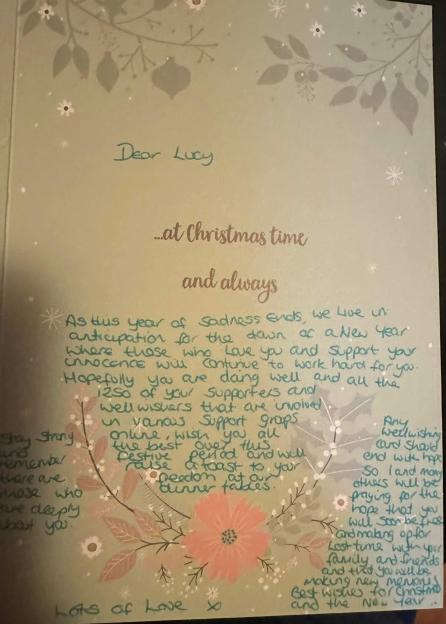 Dear Lucy
...at Christmas time
and always
As this year of sadness ends, we live in
anticipation for the dawn of a New Year
where those who love you and support your
innocence will continue to work hard for you.
Hopefully you are doing well and all the
1250 of your supporters and
well wishers that are involved
in various support groups
online, wish you all
the best over this
festive period and will
raise a toast to your
freedom at our
dinner tables.
Stay strong
and
remember
there are
those who
are deeply
about you.
Any
well wishing
and should
end with hope
So I and many
others will be
praying for the
hope that you
will soon be free
and making up for
Lost time with your
family and friends
and that you will be
making new memories
Best wishes for Christmas
and the New Year..
Lots of Love x